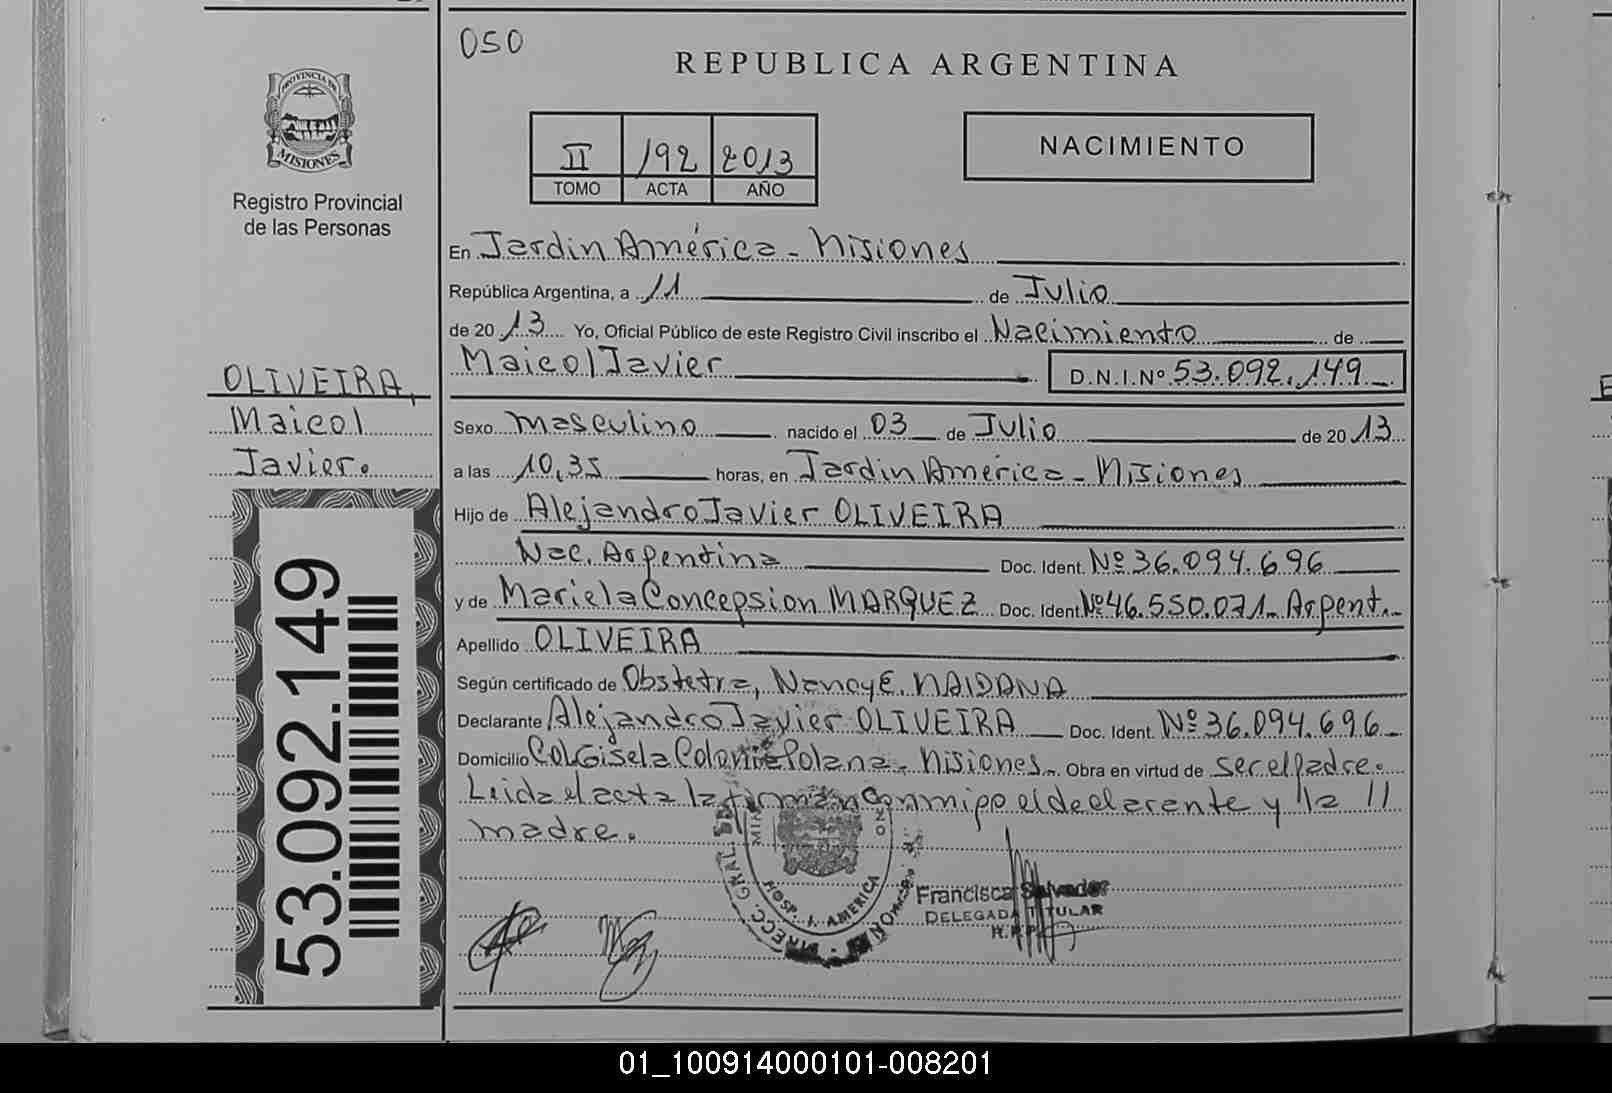 050
REPUBLICA ARGENTINA
PROVINCIA DE
MISIONES
Registro Provincial
de las Personas
II 192 2013
TOMO ACTA AÑO
NACIMIENTO
En Jardin América - Misiones
República Argentina, a 11 de Julio
de 20 13 Yo, Oficial Público de este Registro Civil inscribo el Nacimiento de
Maicol Javier D.N.I.Nº 53.092.149
OLIVEIRA,
Maicol
Javier.
53.092.149
Sexo masculino nacido el 03 de Julio de 20 13
a las 10,35 horas, en Jardin América - Misiones
Hijo de Alejandro Javier OLIVEIRA
Nac. Argentina Doc. Ident. Nº 36.094.696
y de Mariela Concepsion MARQUEZ Doc. Ident. Nº 46.550.071- Argent.
Apellido OLIVEIRA
Según certificado de Obstetra, Nancy E. NAIDANA
Declarante Alejandro Javier OLIVEIRA Doc. Ident. Nº 36.094.696
Domicilio Col Gisela Colonia Polana - Misiones. Obra en virtud de ser el padre.
Leida el acta la firman Conmigo el declarante y la ll
madre.
HOSP. J. AMERICA
Francisca Salvador
DELEGADA TITULAR
R.P.P.
01_100914000101-008201